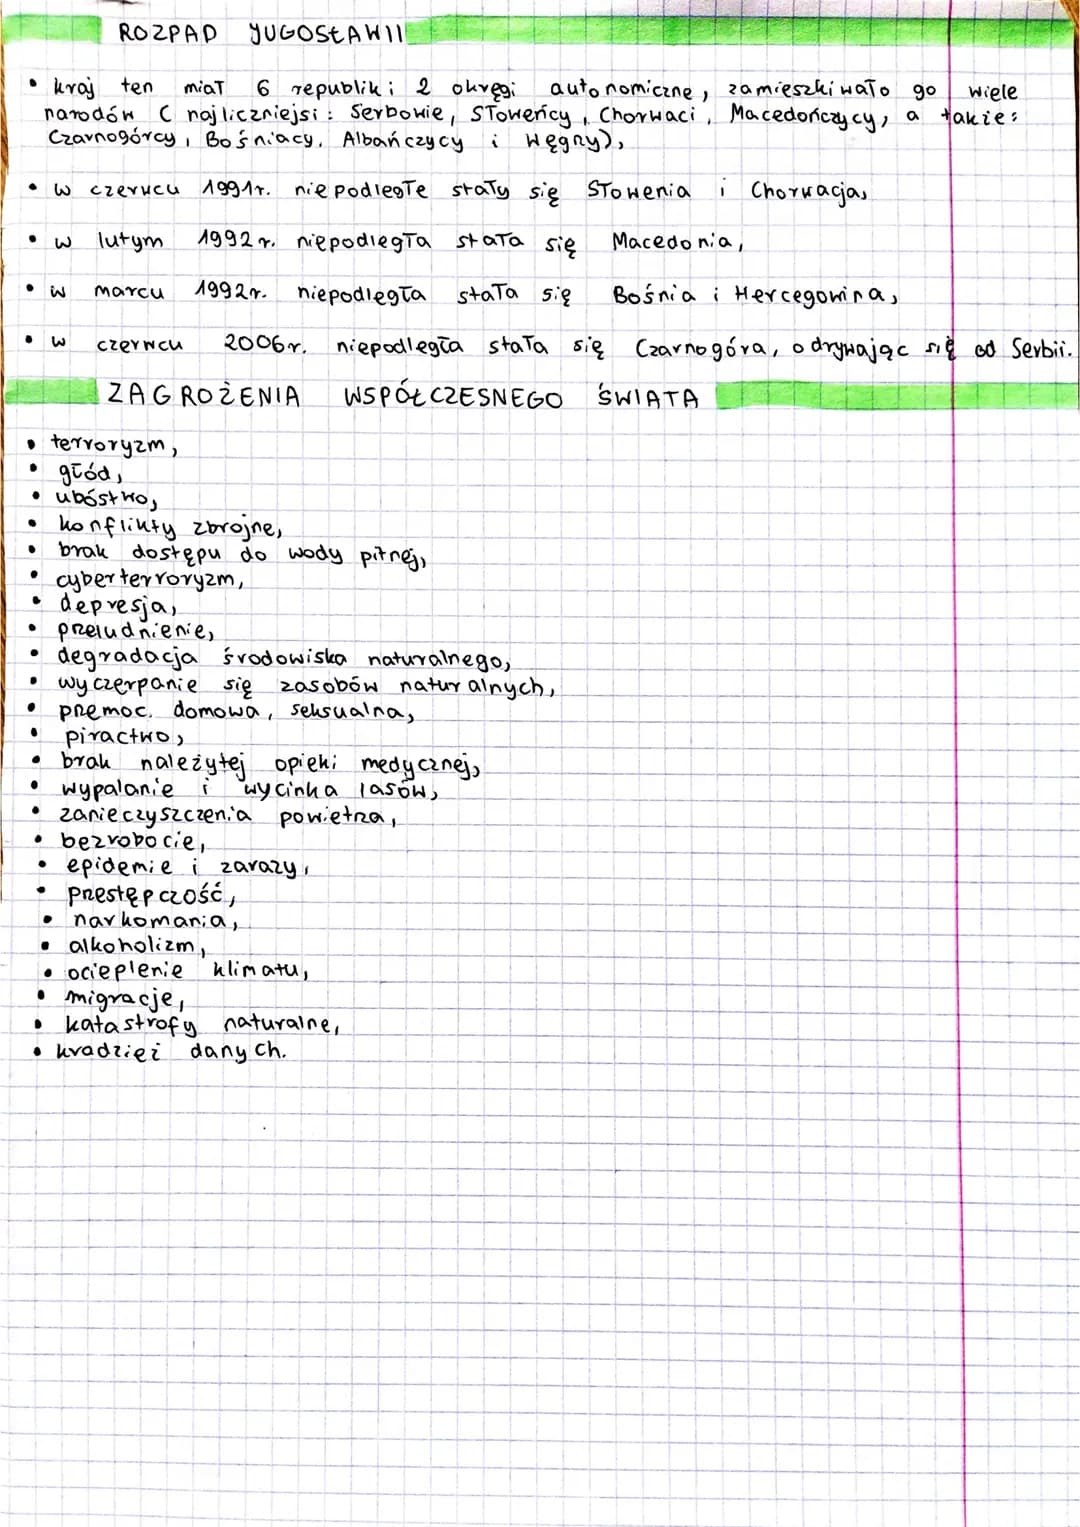 ROZPAD JUGOSŁAWII
• kraj ten miał 6 republik i 2 okręgi autonomiczne, zamieszkiwało go wiele
narodów (najliczniejsi: Serbowie, Słoweńcy, Chorwaci, Macedończycy, a także:
Czarnogórcy, Bośniacy, Albańczycy i Węgrzy),
• w czerwcu 1991r. niepodległe stały się Słowenia i Chorwacja,
• w lutym 1992r. niepodległa stała się Macedonia,
• w marcu 1992r. niepodległa stała się Bośnia i Hercegowina,
• w czerwcu 2006r. niepodległa stała się Czarnogóra, odrywając się od Serbii.
ZAGROŻENIA WSPÓŁCZESNEGO ŚWIATA
• terroryzm,
• głód,
• ubóstwo,
• konflikty zbrojne,
• brak dostępu do wody pitnej,
• cyberterroryzm,
• depresja,
• przeludnienie,
• degradacja środowiska naturalnego,
• wyczerpanie się zasobów naturalnych,
• przemoc. domowa, seksualna,
• piractwo,
• brak należytej opieki medycznej,
• wypalanie i wycinka lasów,
• zanieczyszczenia powietrza,
• bezrobocie,
• epidemie i zarazy,
• przestępczość,
• narkomania,
• alkoholizm,
• ocieplenie klimatu,
• migracje,
• katastrofy naturalne,
• kradzież danych.